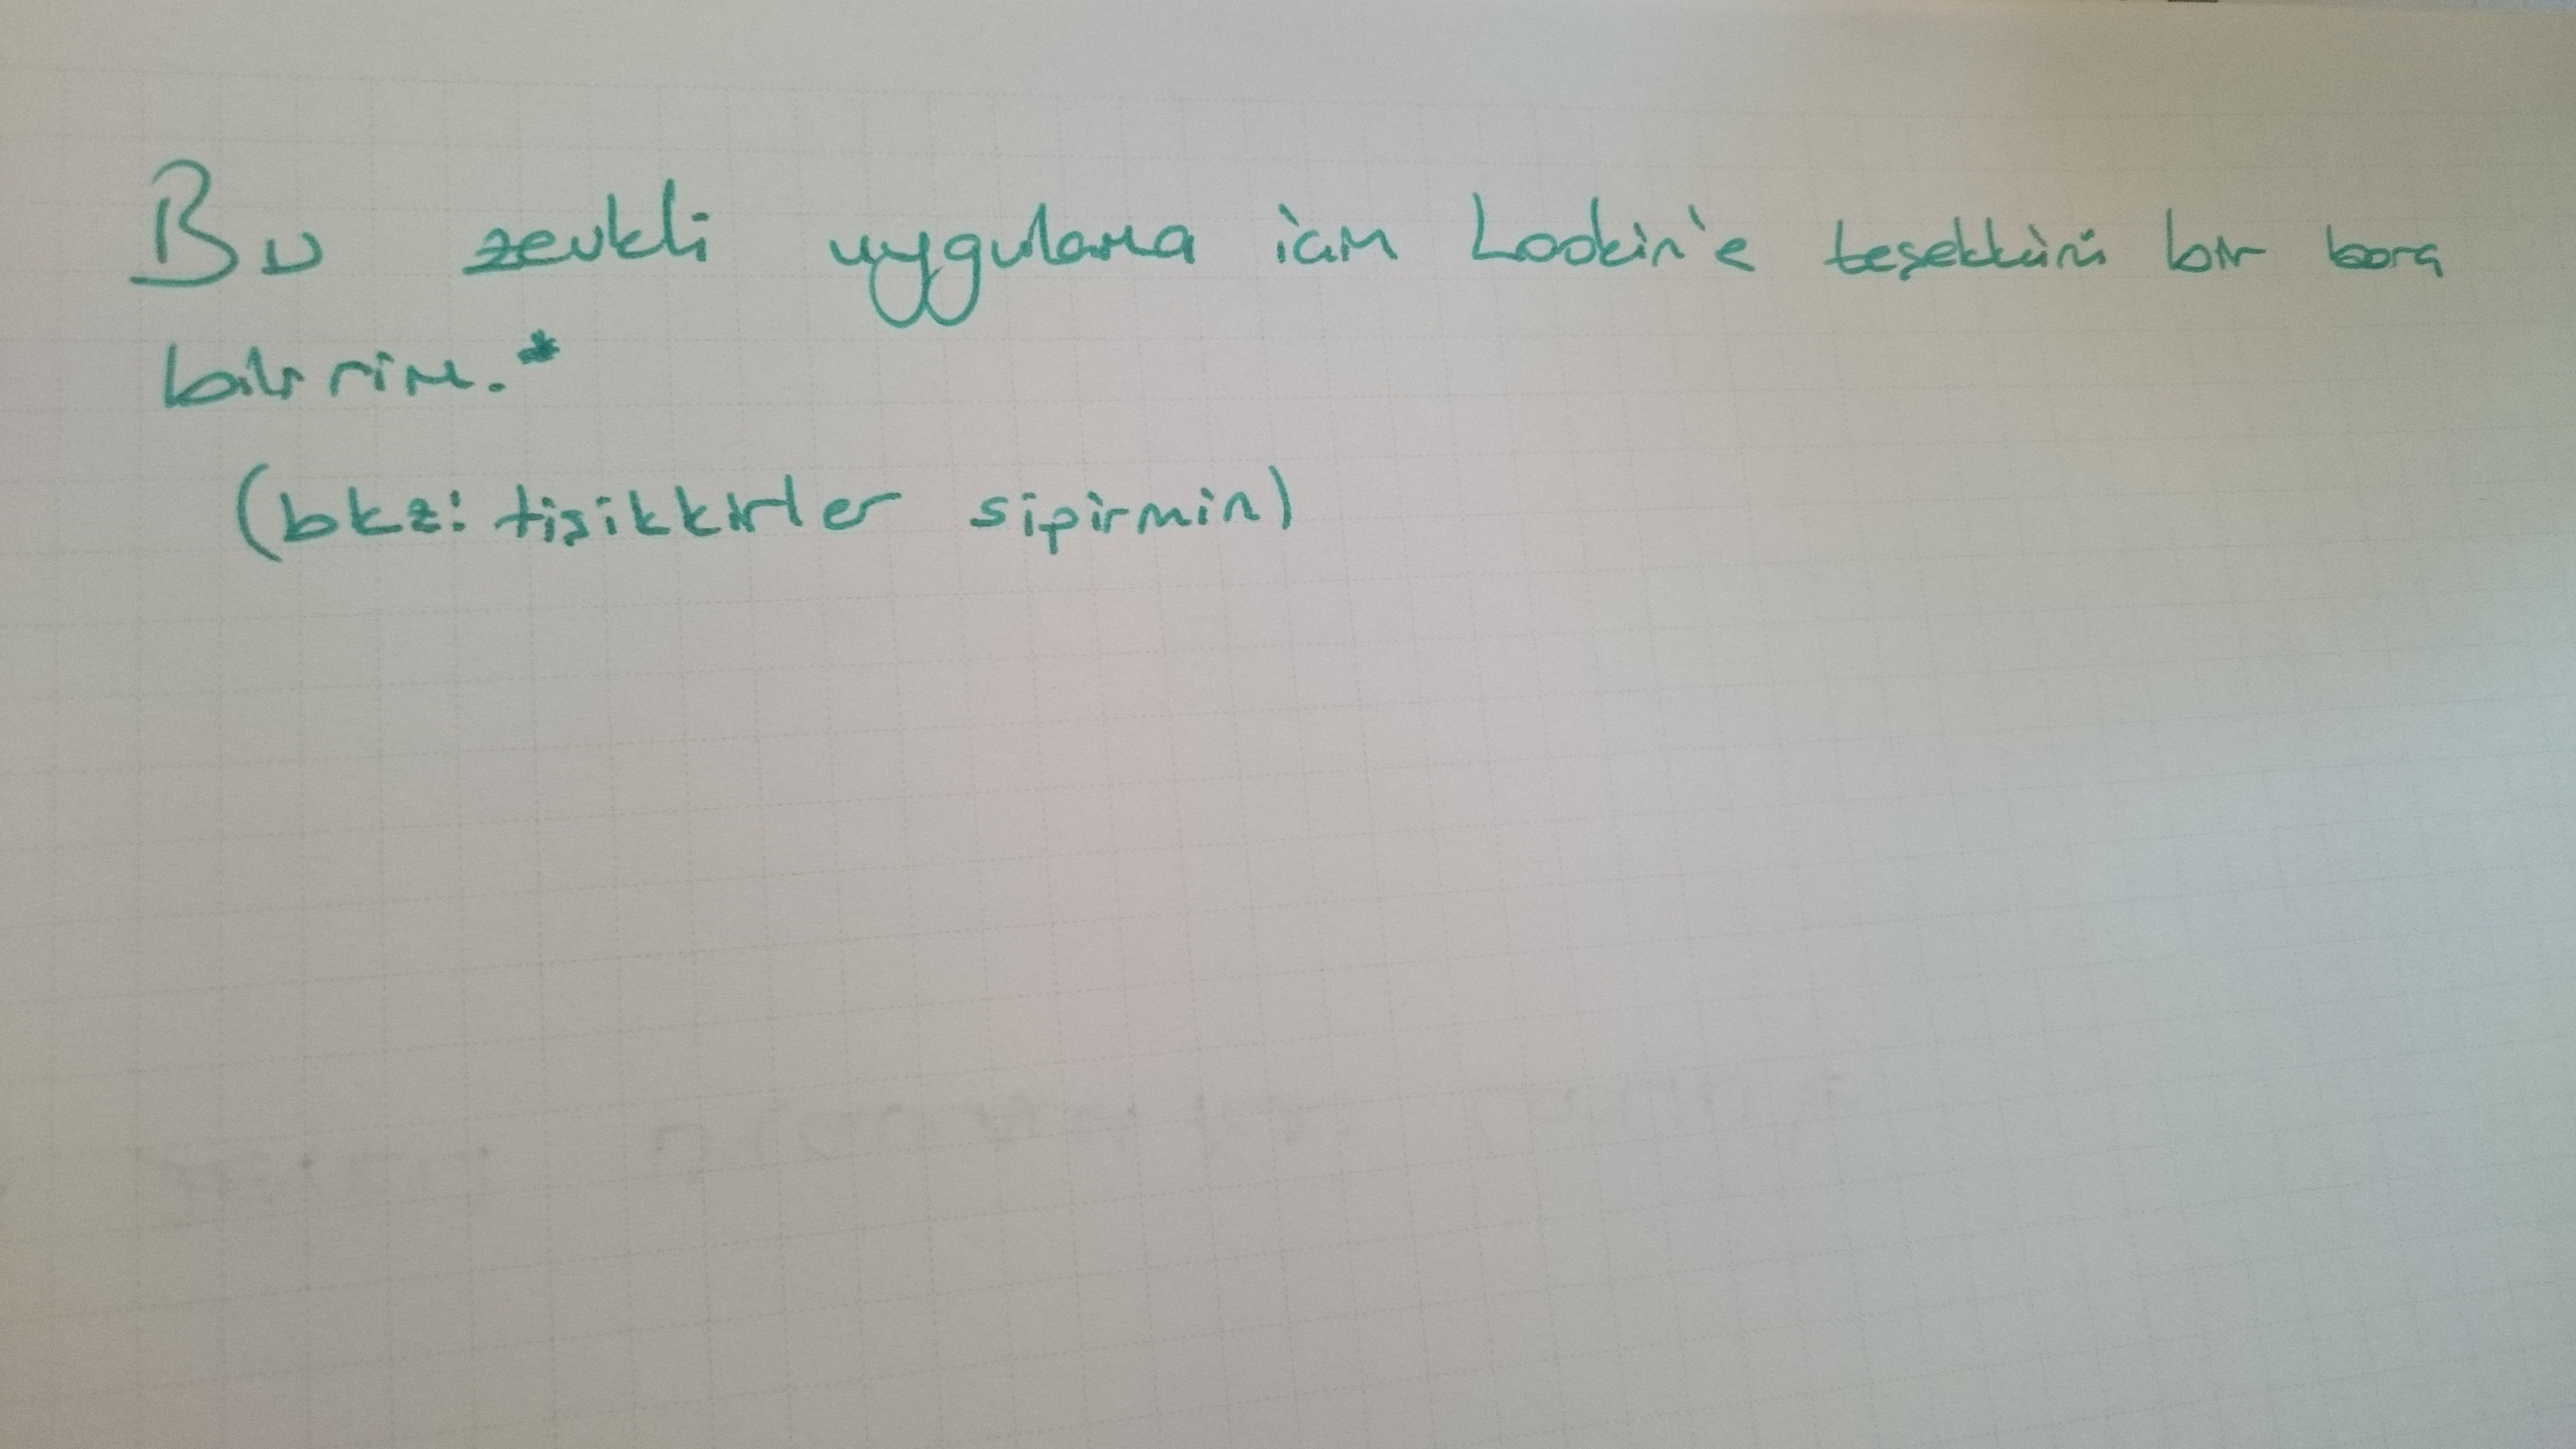 Bu zevkli uygulama için Lookin'e teşekkürü bir borç
bilirim.*
(bkz: tişikkirler sipirmin)